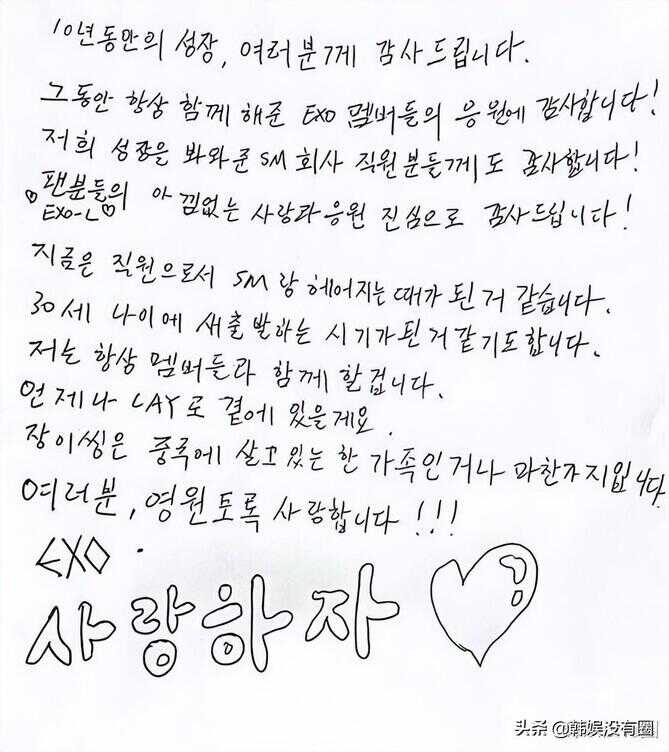 10년동안의 성장, 여러분께 감사드립니다.
그동안 항상 함께 해준 EXO 멤버들의 응원에 감사합니다!
저희 성장을 봐와준 SM 회사 직원분들께도 감사합니다!
♡팬분들의 아낌없는 사랑과 응원 진심으로 감사드립니다!
EXO-L♡
지금은 직원으로서 SM랑 헤어지는 때가 된 거 같습니다.
30세 나이에 새출발하는 시기가 된거 같기도 합니다.
저는 항상 멤버들과 함께 할겁니다.
언제나 LAY로 곁에 있을게요.
장이씽은 중국에 살고있는 한 가족인거나 마찬가지입니다.
여러분, 영원토록 사랑합니다!!!
EXO.
사랑하자 ♡
头条 @韩娱没有圈